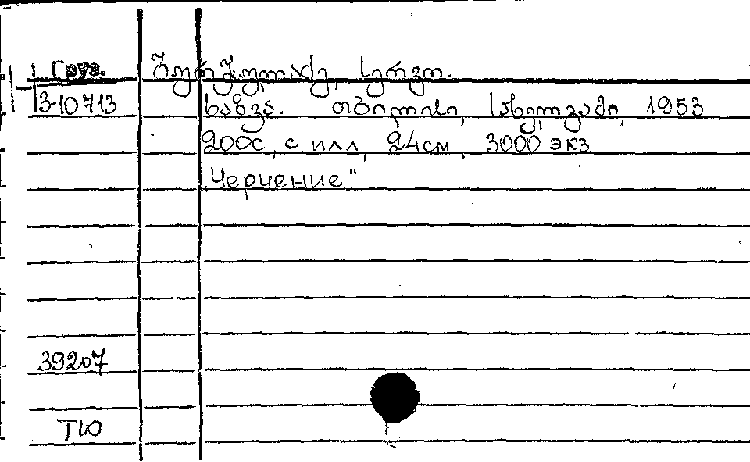 Груз. გურგულაძე, სერგო.
3-10713 ხაზვა. თბილისი, სახელგამი, 1953
200с, с илл, 24см, 3000 экз
"Черчение"
39207
ТЮ